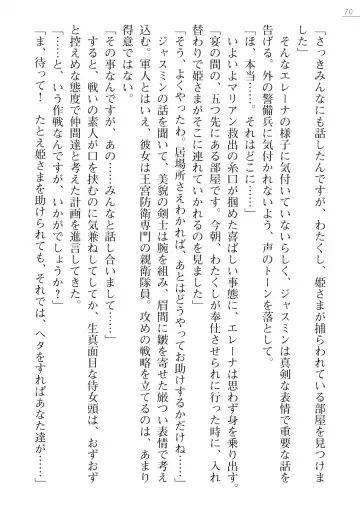 70
「さっきみんなにも話したんですが、わたくし、姫さまが捕らわれている部屋を見つけま
した」
そんなエレーナの様子に気付いていないらしく、ジャスミンは真剣な表情で重要な話を
告げる。外の警備兵に気付かれないよう、声のトーンを落として。
「ほ、本当……。それはどこに…」
いよいよマリアン救出の糸口が掴めた喜ばしい事態に、エレーナは思わず身を乗り出す。
「宴の間の、五つ先にある部屋です。今朝、わたくしたちが奉仕させられに行った時に、入れ
替わりで姫さまがそこに連れていかれるのを見ました」
「そう、よくやったわ。居場所さえわかれば、あとはどうやってお助けするかだけね…」
ジャスミンの話を聞いて、美貌の剣士は腕を組み、眉間に皺を寄せた厳つい表情で考え
込む。軍人とはいえ、彼女は王宮防衛専門の親衛隊員。攻めの戦略を立てるのは、あまり
得意ではない。
「その事なんですが、あの……みんなと話し合いまして……」
すると、戦いの素人が口を挟むのに気兼ねしてか、生真面目な侍女頭は、おずおず
と控えめな態度で仲間達と考えた計画を進言してきた。
「……と、いう作戦なんですが、いかがでしょうか？」
「ま、待って！　たとえ姫さまを助けられても、それでは、ヘタをすればあなた達が……」